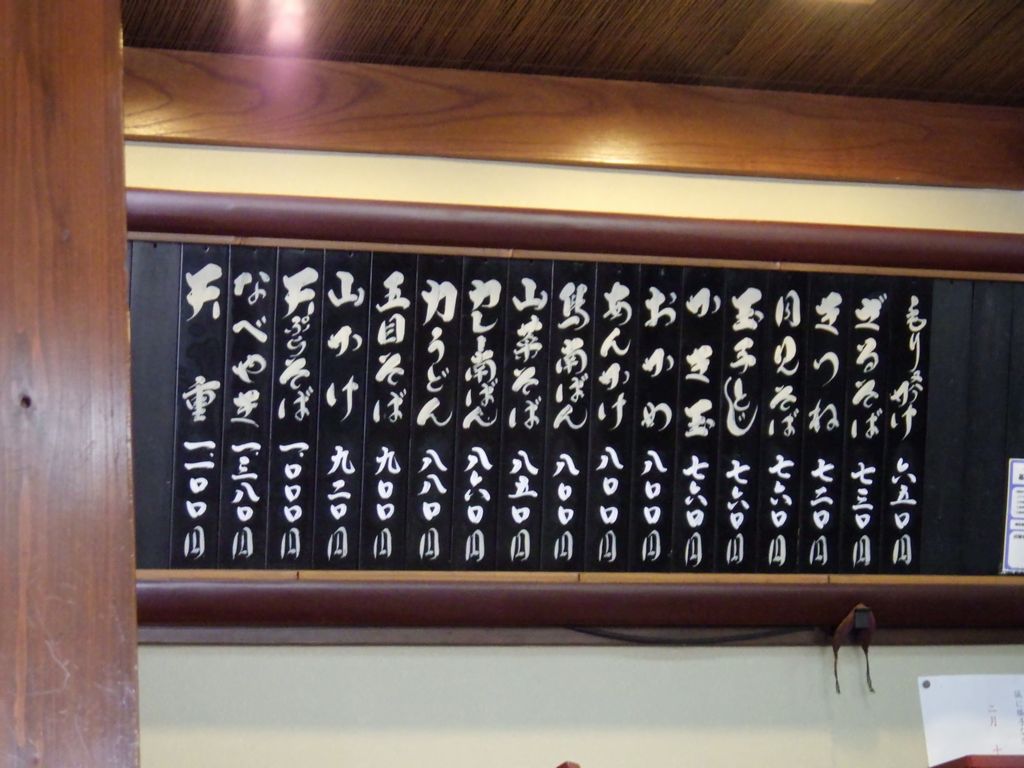 もり又はかけ 六五〇円
ざるそば 七三〇円
きつね 七二〇円
月見そば 七六〇円
玉子とじ 七六〇円
かき玉 七六〇円
おかめ 八〇〇円
あんかけ 八〇〇円
鳥南ばん 八〇〇円
山菜そば 八五〇円
カレー南ばん 八六〇円
力うどん 八八〇円
五目そば 九〇〇円
山かけ 九二〇円
天ぷらそば 一、〇〇〇円
なべやき 一、三八〇円
天重 一、一〇〇円
二月